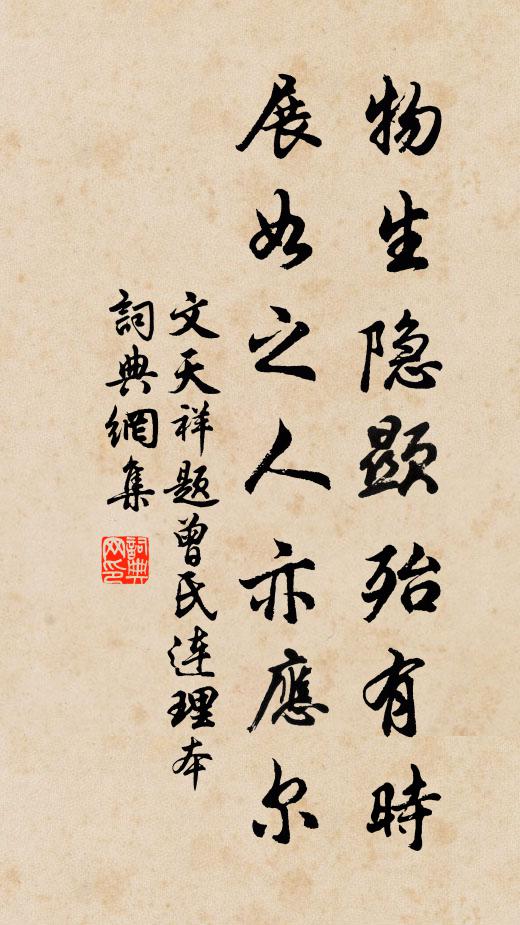 物生隐顕殆有時
展如之人亦應尔
文天祥题曾氏連理本
詞典網集
詞典
网印